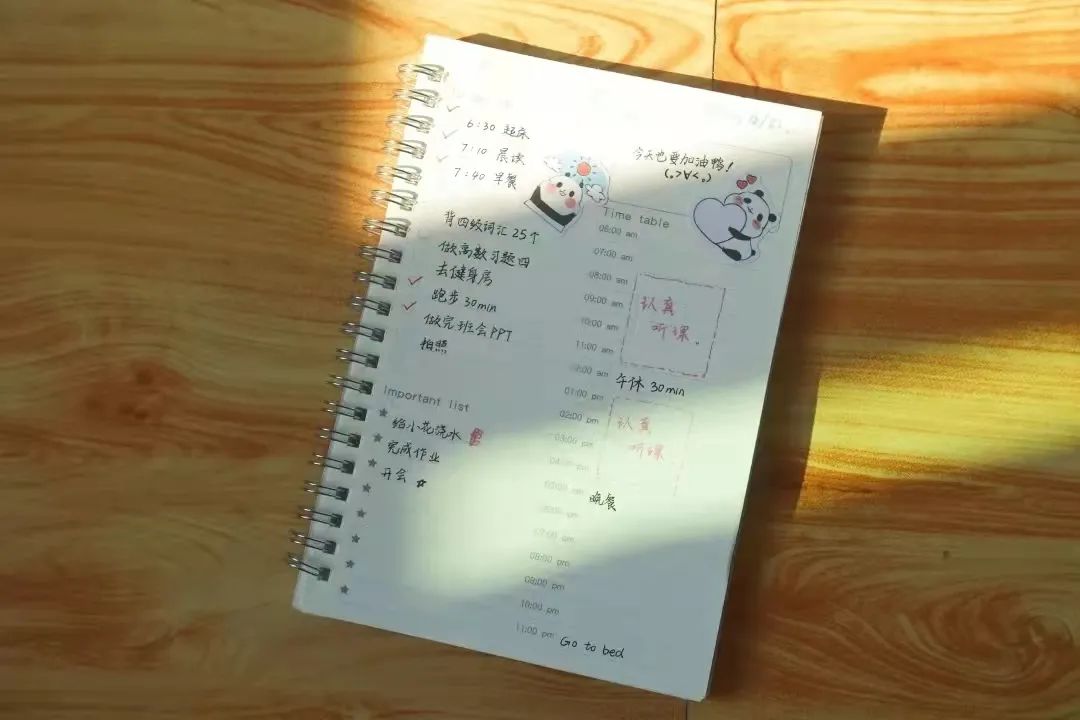 6:30 起床
7:10 晨读
7:40 早餐
背四级词汇 25个
做高数习题四
去健身房
跑步 30min
做完班会PPT
拍照
Important list
给小花浇水
完成作业
开会
今天也要加油鸭！
(｡>∀<｡)
Time table
06:00 am
07:00 am
08:00 am
09:00 am
10:00 am
11:00 am
认真
听课。
12:00 am
午休 30min
01:00 pm
02:00 pm
03:00 pm
04:00 pm
认真
听课
05:00 pm
晚餐
06:00 pm
07:00 pm
08:00 pm
09:00 pm
10:00 pm
11:00 pm
Go to bed